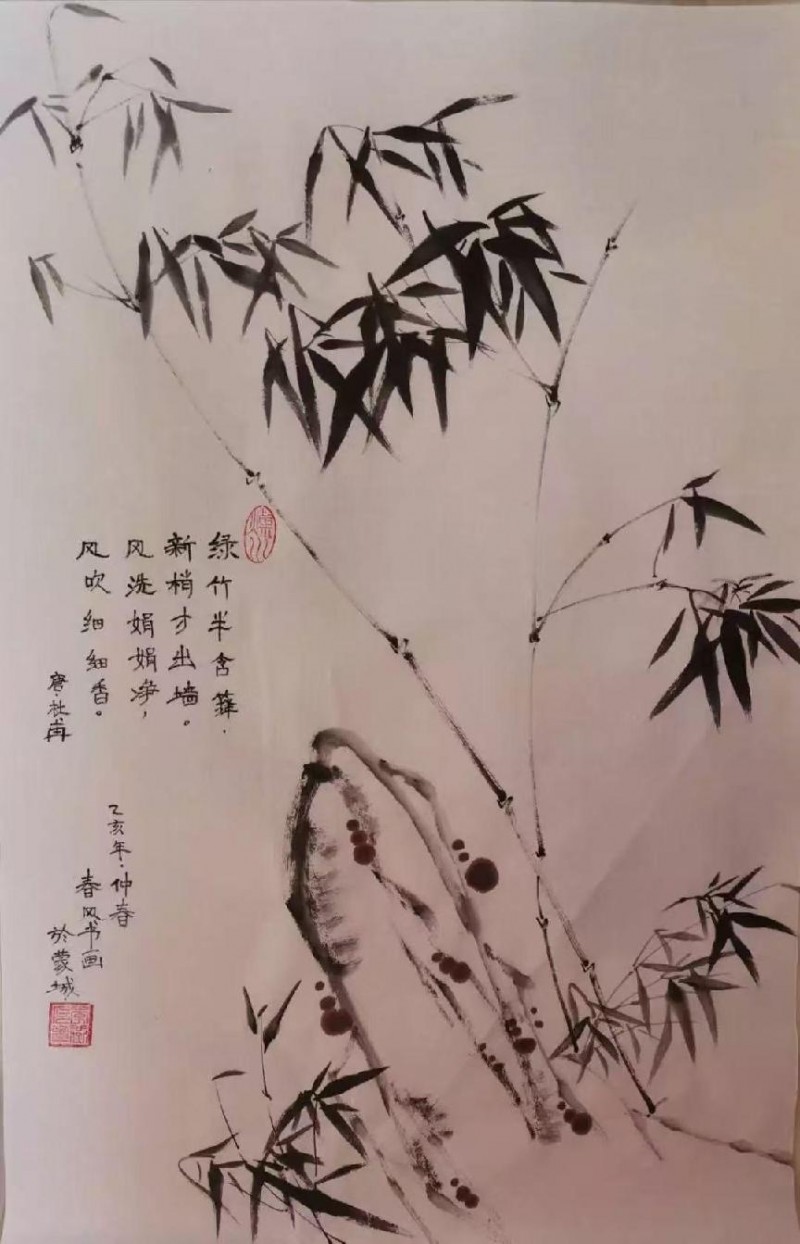 绿竹半含箨.
新梢才出墙。
风洗娟娟净，
风吹细细香。
唐.杜甫
乙亥年.仲春
春风书画
於蒙城